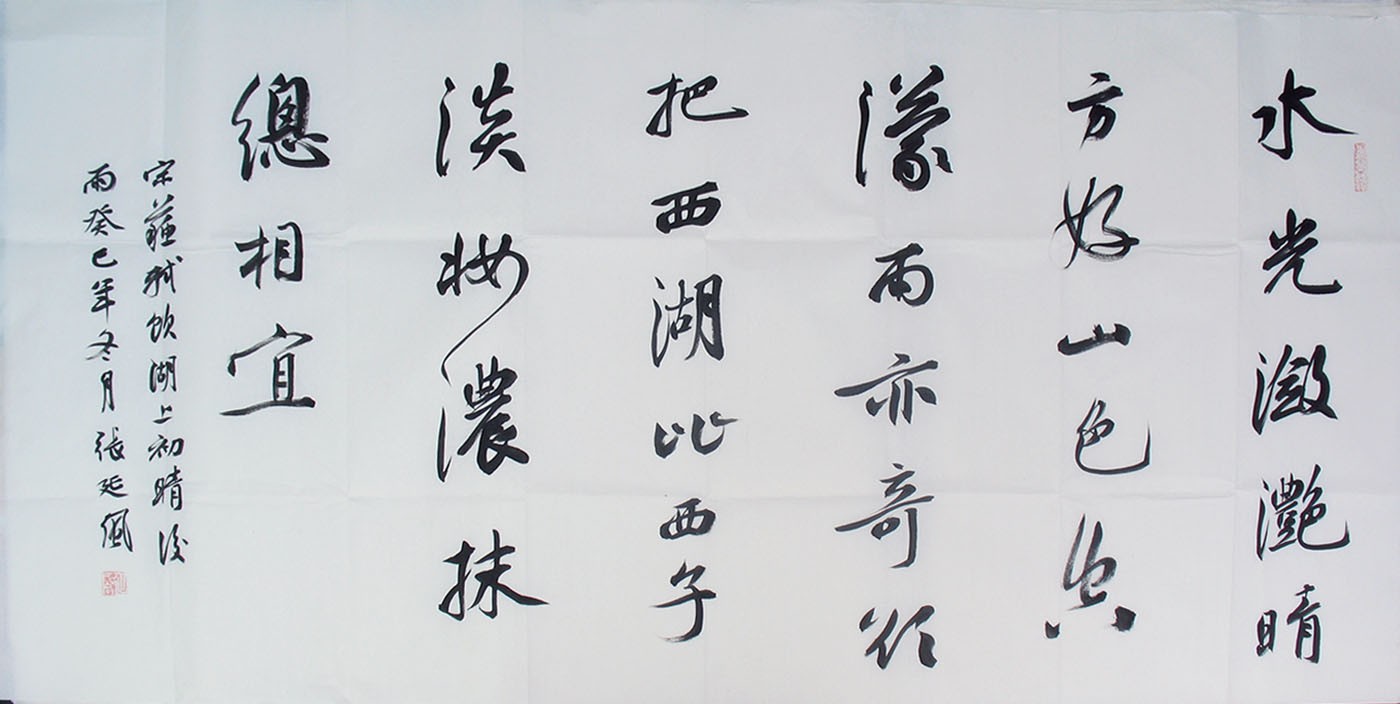 水光瀲灧晴
方好山色空
濛雨亦奇欲
把西湖比西子
淡妝濃抹
總相宜
宋蘇軾飲湖上初晴後
雨癸巳年冬月張延